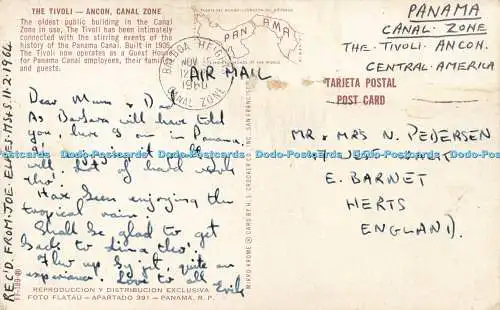 THE TIVOLI — ANCON, CANAL ZONE
The oldest public building in the Canal
Zone in use, The Tivoli has been intimately
connected with the stirring events of the
history of the Panama Canal. Built in 1905,
The Tivoli now operates as a Guest House
for Panama Canal employees, their families
and guests.
PANAMA
BALBOA HEIGHTS
NOV
1960
CANAL ZONE
AIR MAIL
PANAMA
CANAL ZONE
THE TIVOLI, ANCON.
CENTRAL AMERICA
TARJETA POSTAL
POST CARD
REC'D. FROM. JOE 11.2.1964
Dear Mum & Dad
As Barbara will have told
you, here I am in Panama,
will, lot of hard work
tho'.
Have been enjoying the
tropical rain!
Shall be glad to get
back to
tho'.
Flew up by jet, quite an
experience. Love to all
MR & MRS N. PEDERSEN
E. BARNET
HERTS
ENGLAND.
Dodo Postcards Dodo Postcards Dodo Postcards
MIRRO KROME ® CARD BY H. S. CROCKER CO. INC. SAN FRANCISCO
REPRODUCCION Y DISTRIBUCION EXCLUSIVA
FOTO FLATAU — APARTADO 391 — PANAMA, R. P.